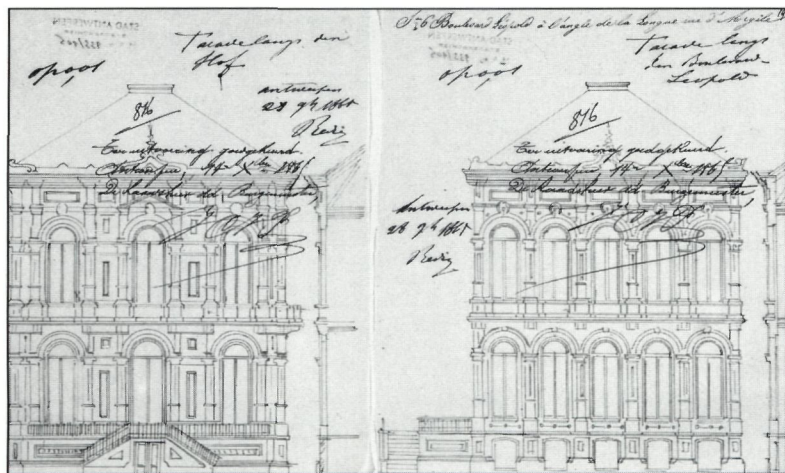 STAD ANTWERPEN
Facade langs den
Hof
op 0,01
Antwerpen
28 9br 1865
816
Ter uitvoering goedgekeurd
Antwerpen, 14n Xber 1865
De Raadsheer dd. Burgemeester,
Nº 6 Boulevard Léopold à l'angle de la Longue rue d'Argile
STAD ANTWERPEN
Facade langs
den Boulevard
Leopold
op 0,01
816
Ter uitvoering goedgekeurd
Antwerpen, 14n Xber 1865
De Raadsheer dd. Burgemeester,
Antwerpen
28 9br 1865